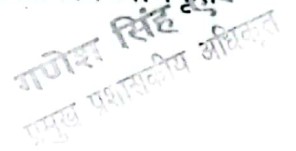 गणेश सिंह
प्रमुख प्रशासकीय अधिकृत